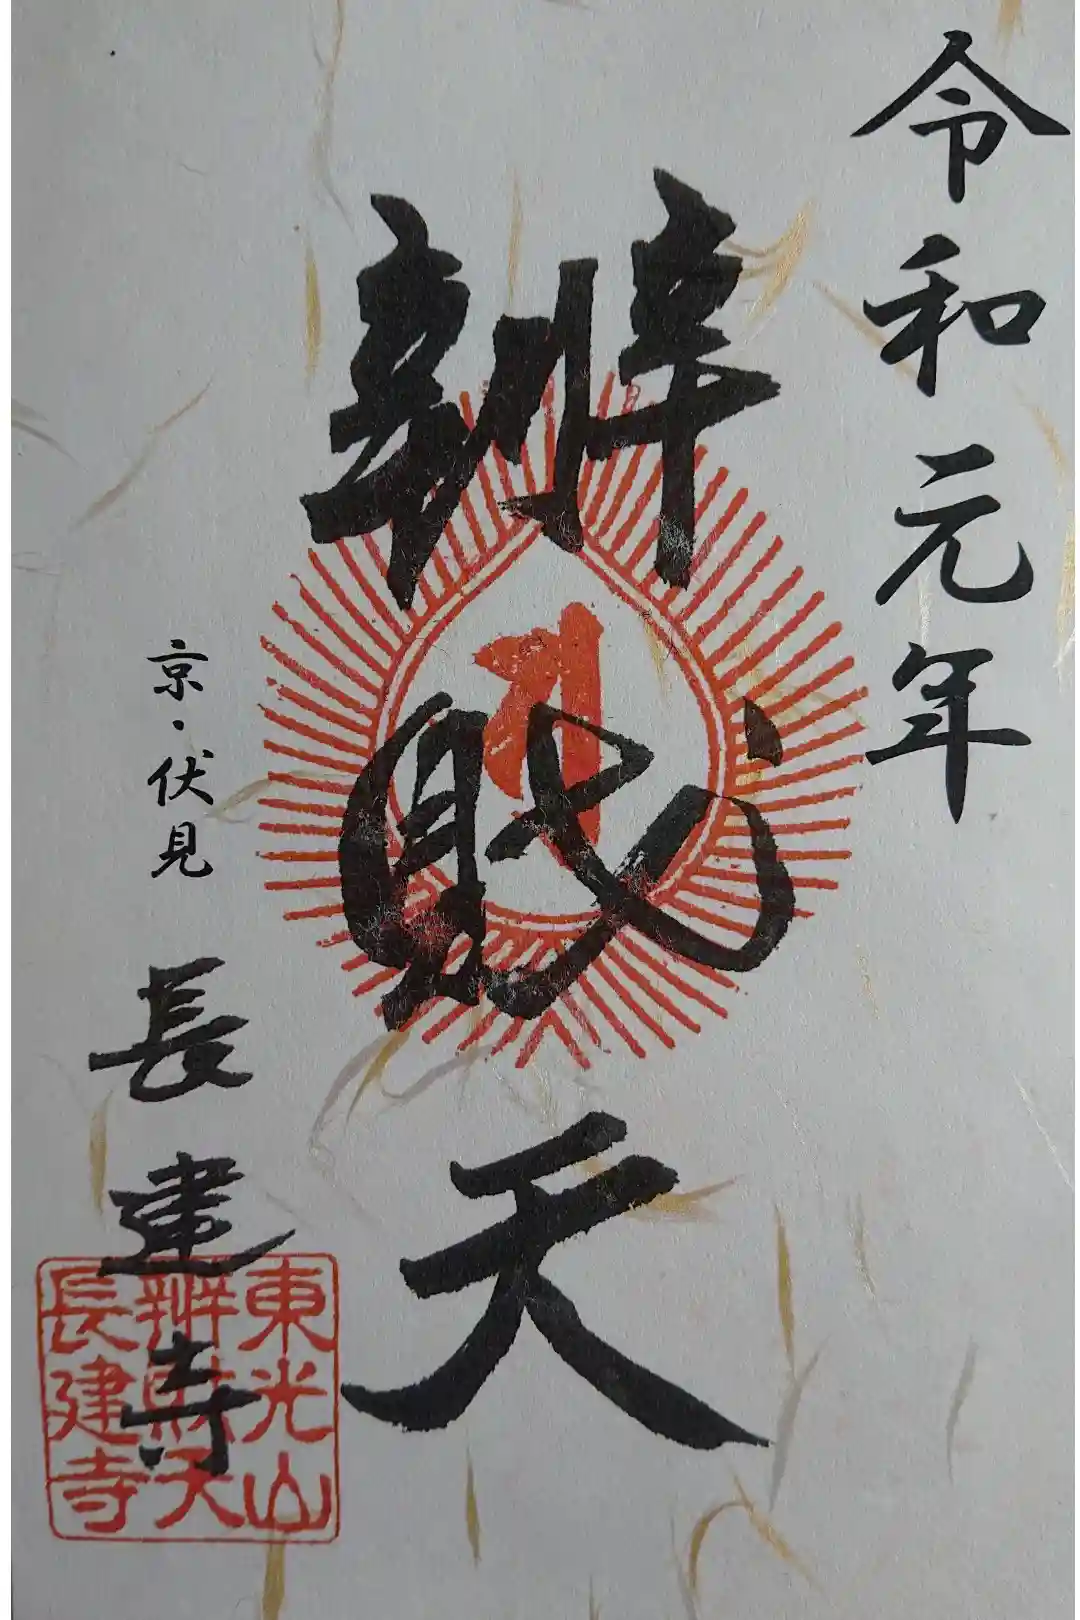 令和元年
辨財天
京・伏見 長建寺
東光山
辨財天
長建寺